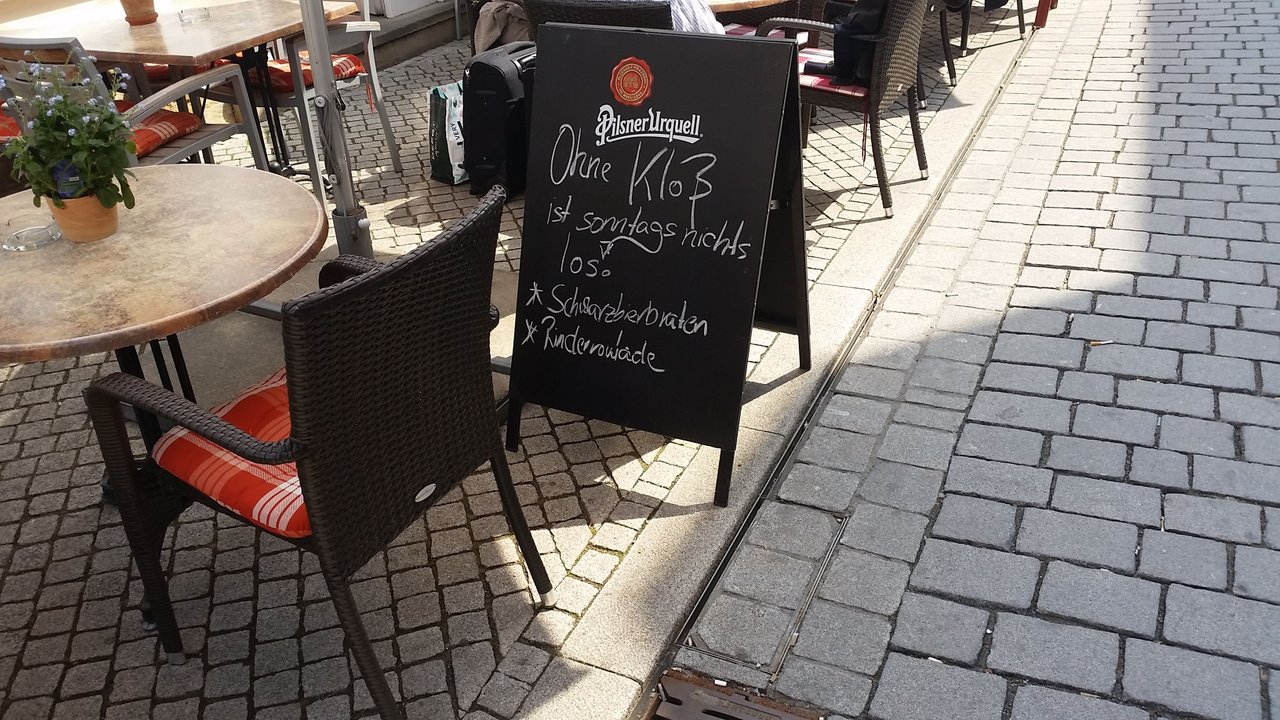 Pilsner Urquell
Ohne Kloß
ist sonntags nichts
los.
* Schwarzbierbraten
* Rinderroulade